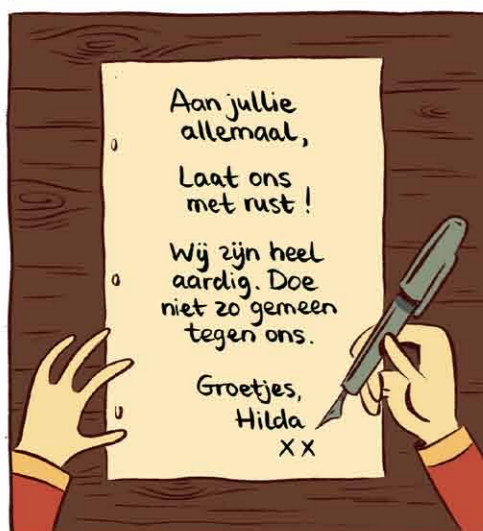 Aan jullie
allemaal,
Laat ons
met rust!
Wij zijn heel
aardig. Doe
niet zo gemeen
tegen ons.
Groetjes,
Hilda
x x